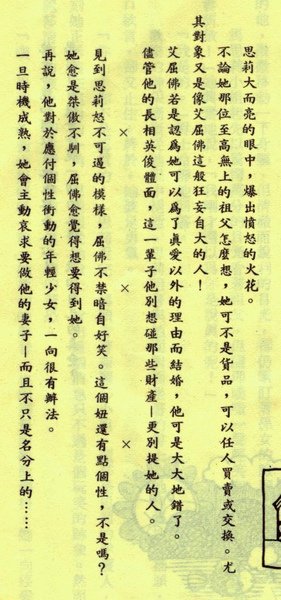 思莉大而亮的眼中，爆出憤怒的火花。
不論她那位至高無上的祖父怎麼想，她可不是貨品，可以任人買賣或交換。尤
其對象又是像艾屈佛這般狂妄自大的人！
艾屈佛若是認爲她可以爲了眞愛以外的理由而結婚，他可是大大地錯了。
儘管他的長相英俊體面，這一輩子他別想碰那些財產—更別提她的人。
× × ×
見到思莉怒不可遏的模樣，屈佛不禁暗自好笑。這個妞還有點個性，不是嗎？
她愈是桀傲不馴，屈佛愈覺得想要得到她。
再說，他對於應付個性衝動的年輕少女，一向很有辦法。
一旦時機成熟，她會主動哀求要做他的妻子—而且不只是名分上的……